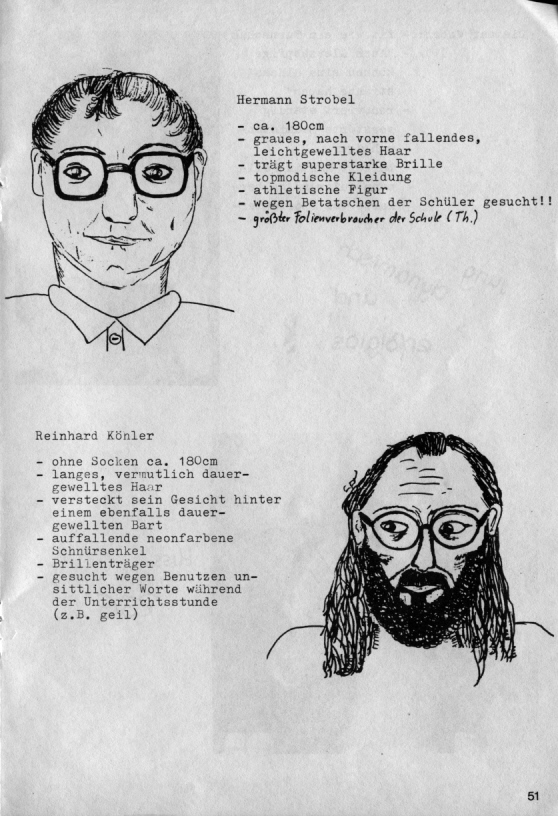 Hermann Strobel
- ca. 180cm
- graues, nach vorne fallendes,
leichtgewelltes Haar
- trägt superstarke Brille
- topmodische Kleidung
- athletische Figur
- wegen Betatschen der Schüler gesucht!!
- größter Folienverbraucher der Schule (Th.)
Reinhard Könler
- ohne Socken ca. 180cm
- langes, vermutlich dauer-
gewelltes Haar
- versteckt sein Gesicht hinter
einem ebenfalls dauer-
gewellten Bart
- auffallende neonfarbene
Schnürsenkel
- Brillenträger
- gesucht wegen Benutzen un-
sittlicher Worte während
der Unterrichtsstunde
(z.B. geil)
jung
dynamisch
und
erfolglos
51